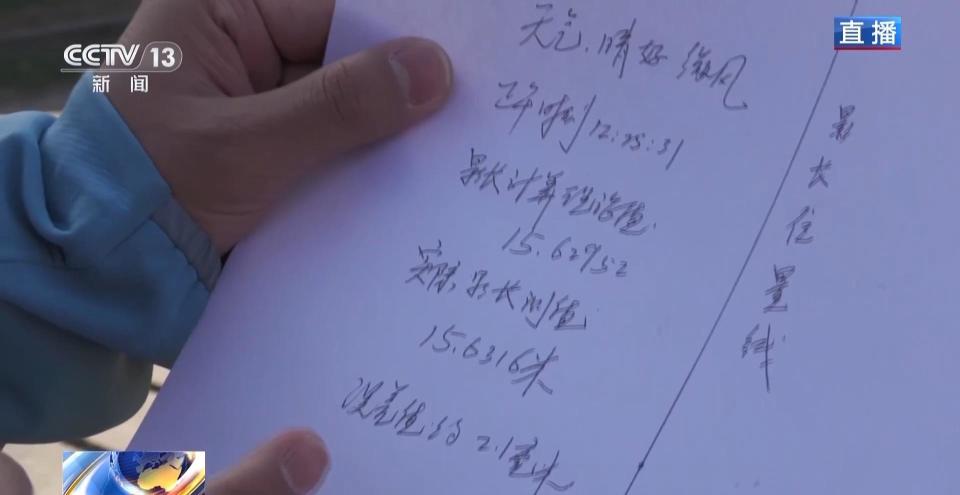 CCTV 13
新闻
直播
天气：晴好 微风
正午时刻 12:25:31
影长计算理论值：
15.62952
实际影长测值：
15.6316米
误差值：约2.1毫米
影长位置线